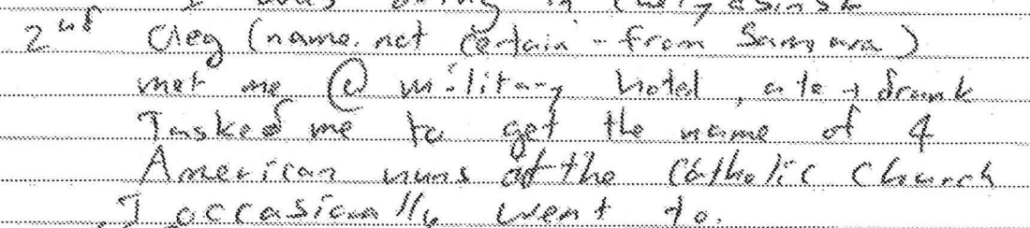 I was being in
2nd Oleg (name not certain - from Samara)
met me @ military hotel, ate + drank
Tasked me to get the name of 4
American nuns at the Catholic Church
I occasionally went to.